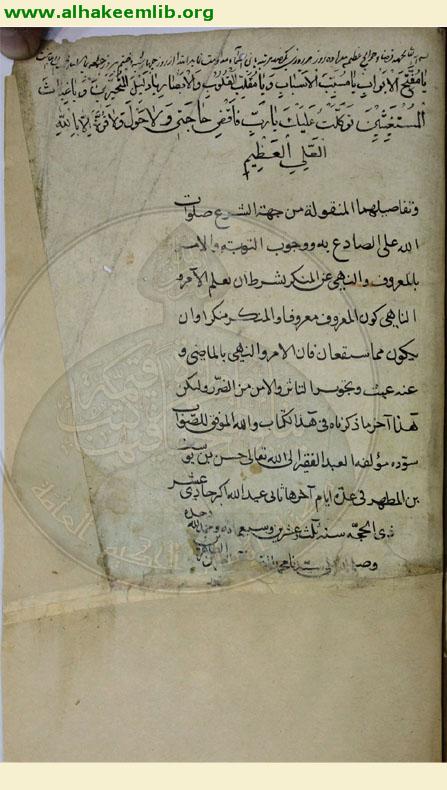 www.alhakeemlib.org
يا مفتح الابواب يا مسبب الاسباب ويا مقلب القلوب والابصار يا دليل المتحيرين ويا غياث
المستغيثين توكلت عليك يا رب فاقض حاجتي ولا حول ولا قوة الا بالله
العلي العظيم
وتفاصيلهما المنقولة من جهة الشرع صلوات
الله على الصادع به ووجوب التوبة والامر
بالمعروف والنهي عن المنكر بشرط ان يعلم الآمر و
الناهي كون المعروف معروفا والمنكر منكرا وان
يكون مما سيقعان فان الامر والنهي بالماضي و
عنه عبث وتجويز التاثير والامن من الضرر وليكن
هذا آخر ما ذكرناه في هذا الكتاب والله الموفق للصواب
سوده مؤلفه العبد الفقير الى الله تعالى حسن بن يوسف
بن المطهر في عدة ايام آخرها ثاني عيد الله اكبر حادي عشر
ذي الحجه سنه ثلث عشرين وسبعمائه والحمد لله وحده
وصلى الله على سيدنا محمد